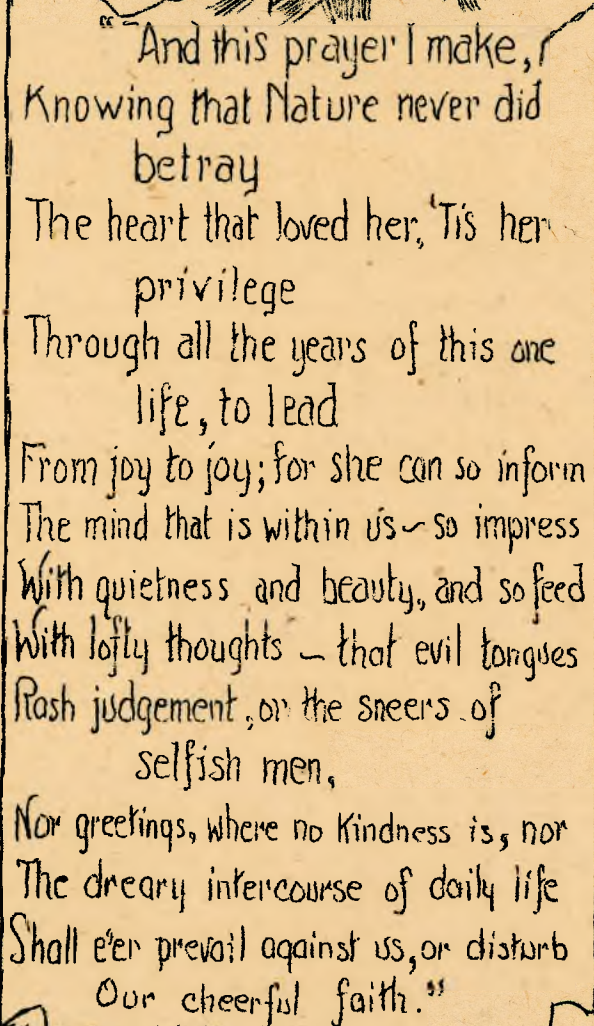 "And this prayer I make,
Knowing that Nature never did
betray
The heart that loved her, 'Tis her
privilege
Through all the years of this one
life, to lead
From joy to joy; for she can so inform
The mind that is within us – so impress
With quietness and beauty, and so feed
With lofty thoughts – that evil tongues
Rash judgement, or the sneers of
selfish men,
Nor greetings, where no kindness is, nor
The dreary intercourse of daily life
Shall e'er prevail against us, or disturb
Our cheerful faith."